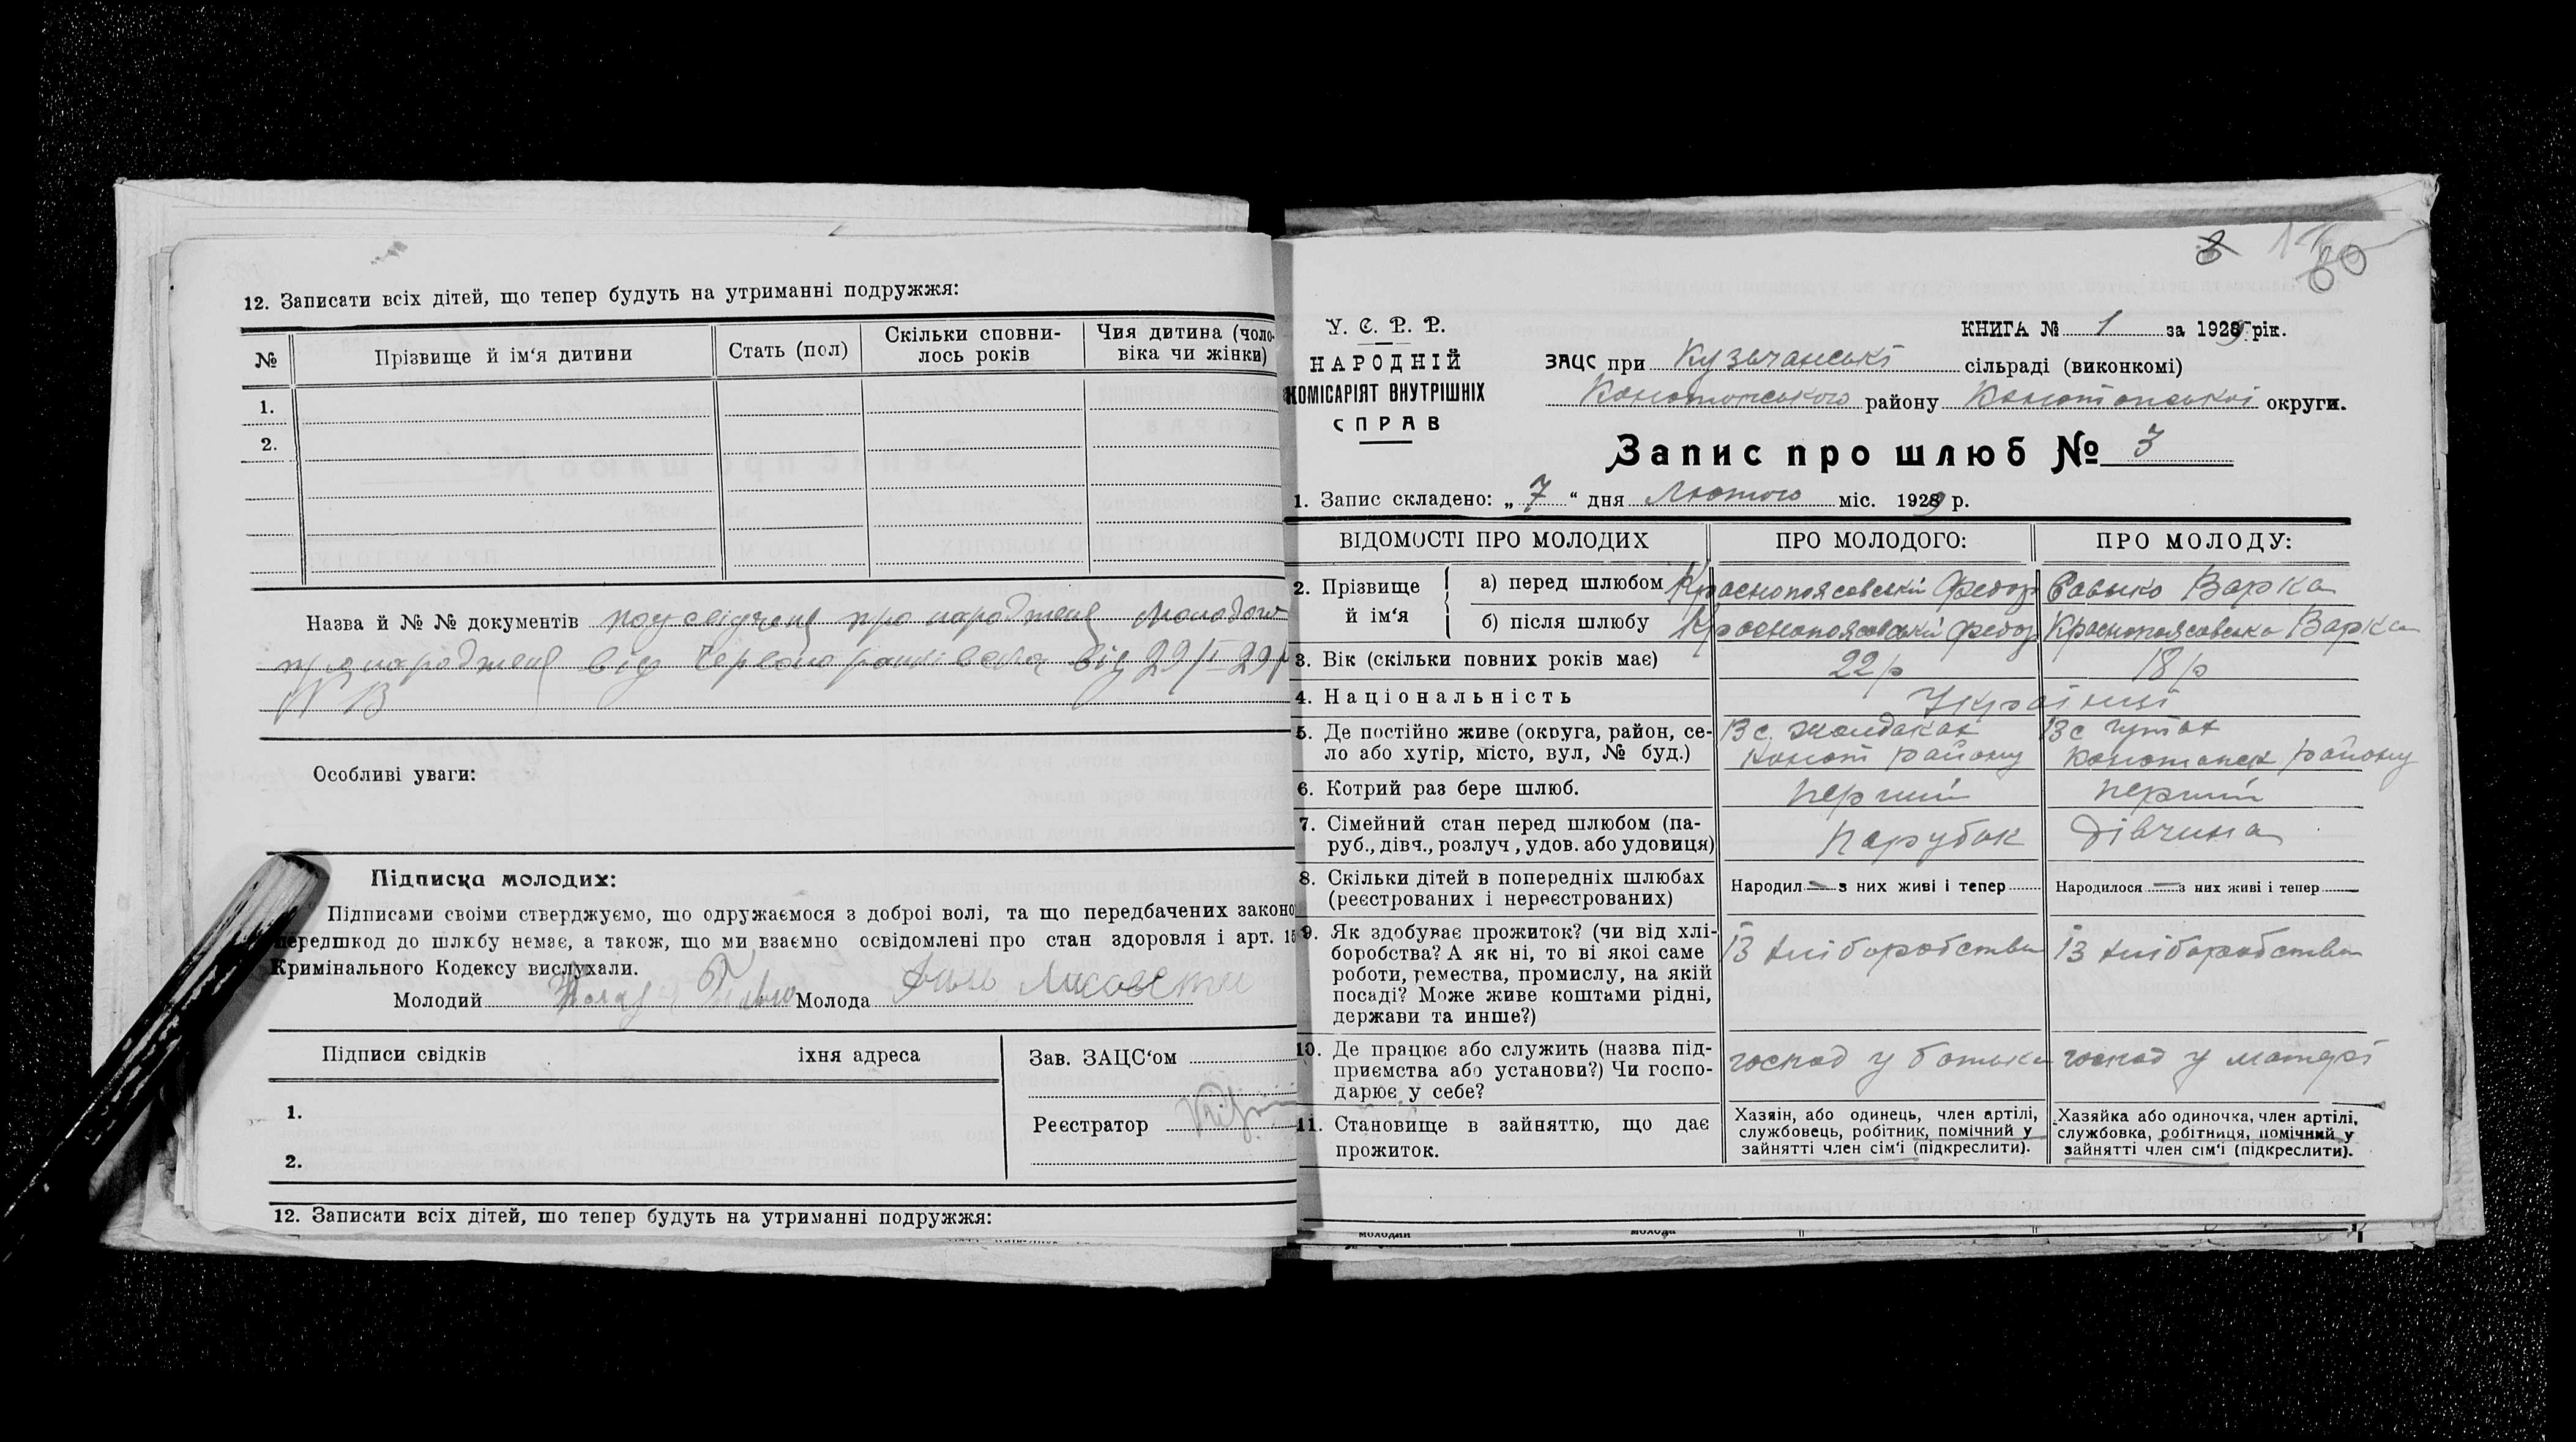 12. Записати всіх дітей, що тепер будуть на утриманні подружжя:
№ Прізвище й ім'я дитини Стать (пол) Скільки сповни- Чия дитина (чоло-
лось років віка чи жінки)
1.
2.
Назва й № № документів про народженя Молодого
про народженя від від 29/I-29р
№ 13
Особливі уваги:
Підписка молодих:
Підписами своіми стверджуємо, що одружаємося з доброі волі, та що передбачених законо
передшкод до шлюбу немає, а також, що ми взаємно освідомлені про стан здоровля і арт. 15
Кримінального Кодексу вислухали.
Молодий Молода
Підписи свідків іхня адреса Зав. ЗАЦС'ом
1.
Реєстратор
2.
12. Записати всіх дітей, шо тепер будуть на утриманні подружжя:
8 60
У. С. Р. Р.
НАРОДНІЙ
КОМІСАРІЯТ ВНУТРІШНІХ
СПРАВ
КНИГА № 1 за 1929 рік.
ЗАЦС при сільраді (виконкомі)
Конотопського району Конотопської округи.
Запис про шлюб № 3
1. Запис складено: „ 7 “ дня Лютого міс. 1929 р.
ВІДОМОСТІ ПРО МОЛОДИХ ПРО МОЛОДОГО: ПРО МОЛОДУ:
2. Прізвище й ім'я а) перед шлюбом Краснопоясовський Федор Савыко Варка
б) після шлюбу Краснопоясовський Федор Краснопоясовська Варка
3. Вік (скільки повних років має) 22 р 18 р
4. Національність Українці
5. Де постійно живе (округа, район, се- В с. Жолдаках В с Гутах
ло або хутір, місто, вул, № буд.) Конот району Конотопск району
6. Котрий раз бере шлюб. перший перший
7. Сімейний стан перед шлюбом (па- Парубок Дівчина
руб., дівч., розлуч, удов. або удовиця)
8. Скільки дітей в попередніх шлюбах Народил — з них живі і тепер Народилося — з них живі і тепер
(реєстрованих і нереєстрованих)
9. Як здобуває прожиток? (чи від хлі- Із хліборобства Із хліборобства
боробства? А як ні, то ві якоі саме
роботи, ремества, промислу, на якій
посаді? Може живе коштами рідні,
держави та инше?)
10. Де працює або служить (назва під- господ у батька господ у матері
приємства або установи?) Чи госпо-
дарює у себе?
11. Становище в зайняттю, що дає
прожиток.
Хазяін, або одинець, член артілі,
службовець, робітник, помічний у
зайнятті член сім'і (підкреслити).
Хазяйка або одиночка, член артілі,
службовка, робітниця, помічний у
зайнятті член сім'і (підкреслити).
молодий молода